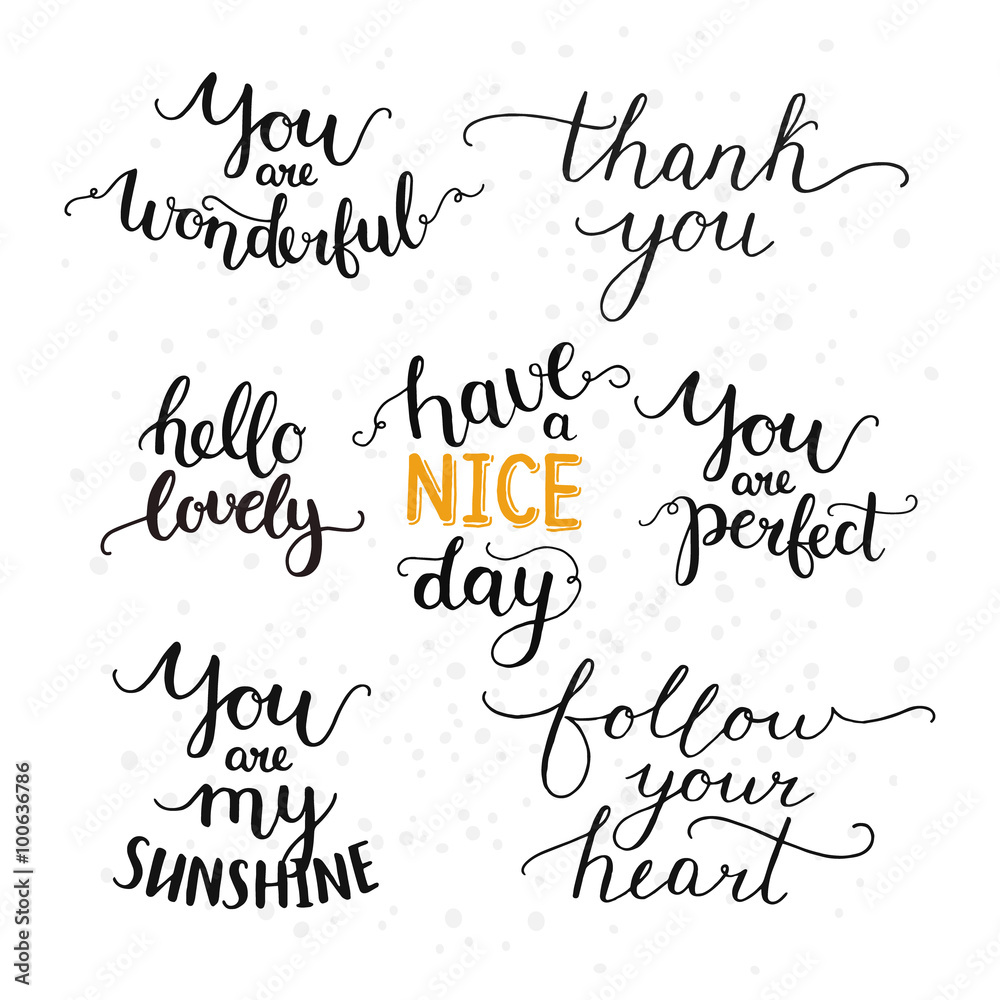 You
are
wonderful
thank
you
hello
lovely
have
a
NICE
day
You
are
perfect
You
are
my
SUNSHINE
follow
your
heart
Adobe Stock | #100636786